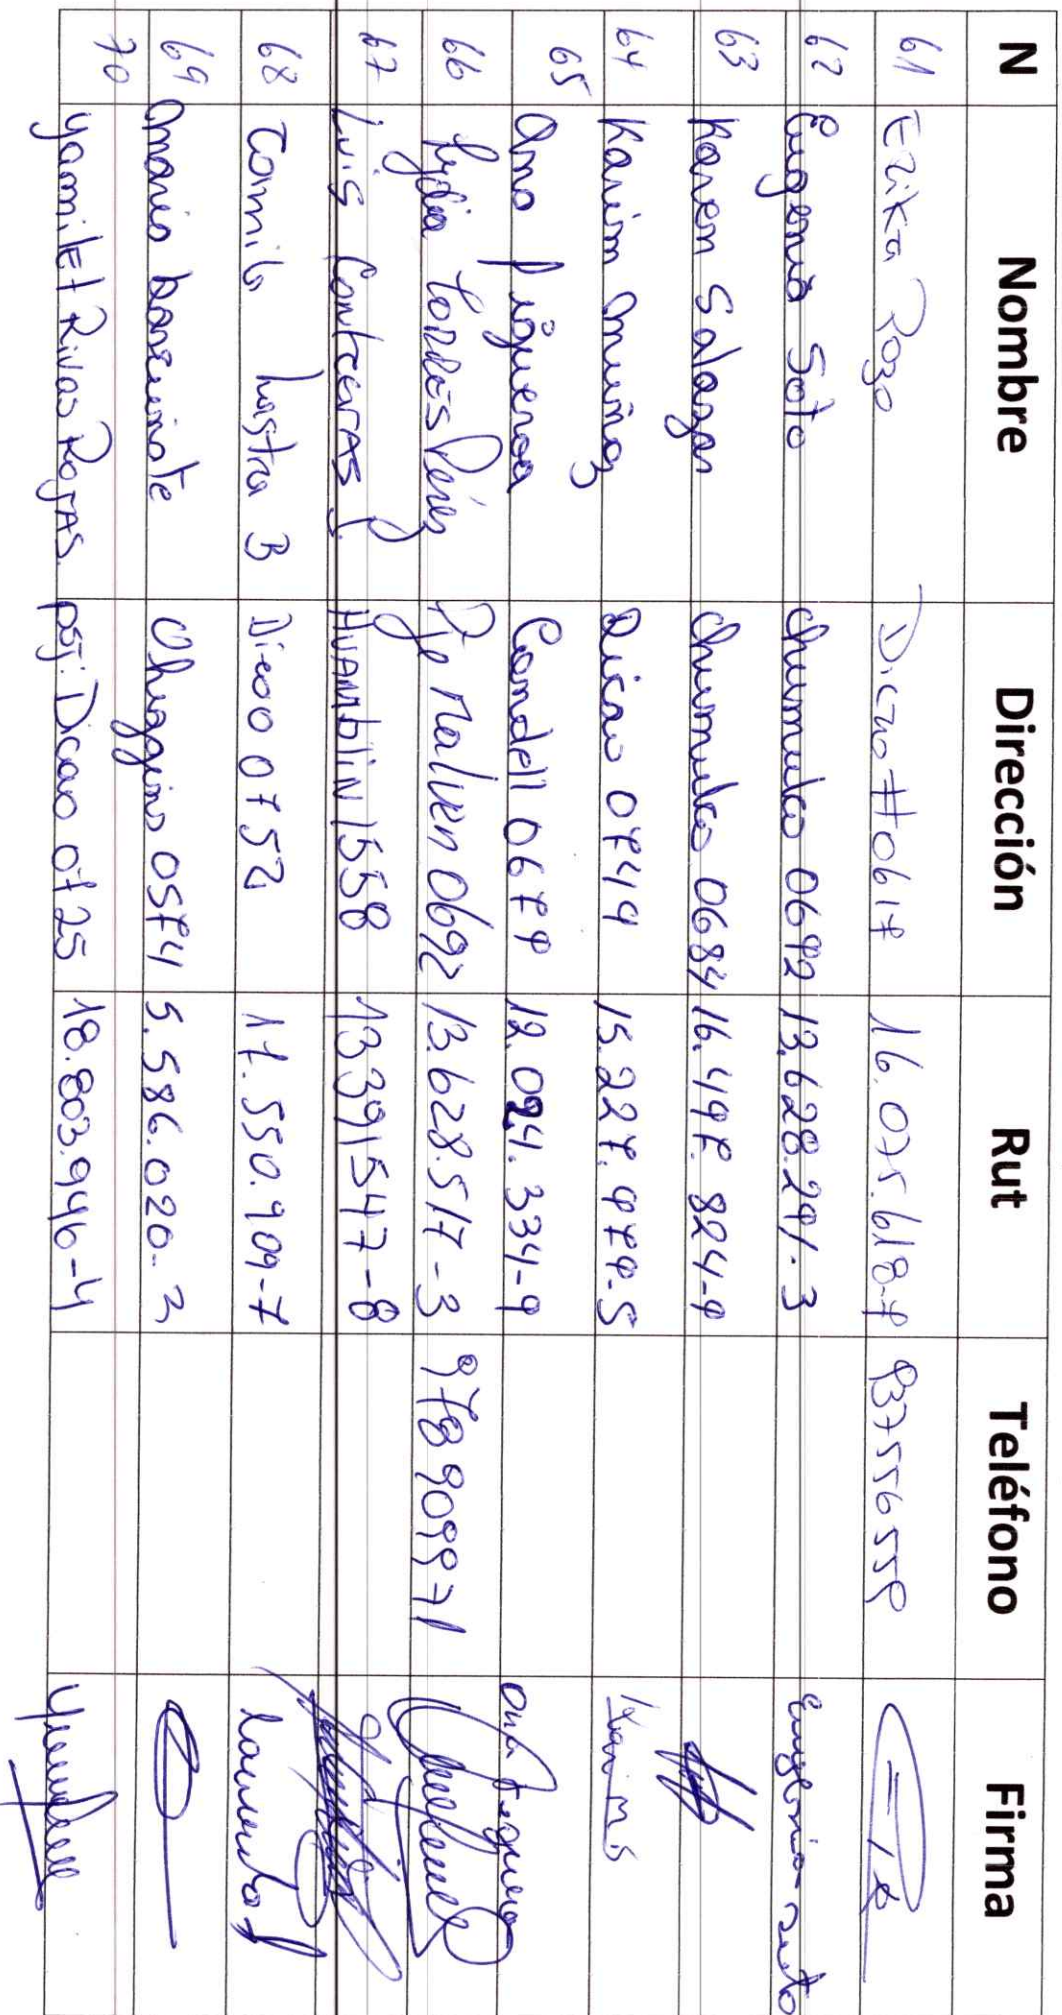 N Nombre Dirección Rut Teléfono Firma
61 Erika Pozo Dicao #0617 16.075.618-7 937556559
62 Eugenia Soto Chusmulco 0692 13.628.291-3 Eugenia Soto
63 Karen Salazar Chusmulco 0684 16.497.824-9
64 Karim Muñoz Dicao 0744 15.227.979-5 Karim M S
65 Ana Figueroa Comdell 0679 12.094.334-9 Ana Figueroa
66 Lydia Torres Pérez Pje Malven 0692 13.628.517-3 978909971
67 Luis Contreras HUAMbLIN 1558 13391547-8
68 Camila Lastra B Dicao 0752 17.550.909-7
69 Maria Barrientos Ohiggins 0574 5.586.020-3
70 Yamilet Rivas Rojas. psj: Dicao 0725 18.803.946-4